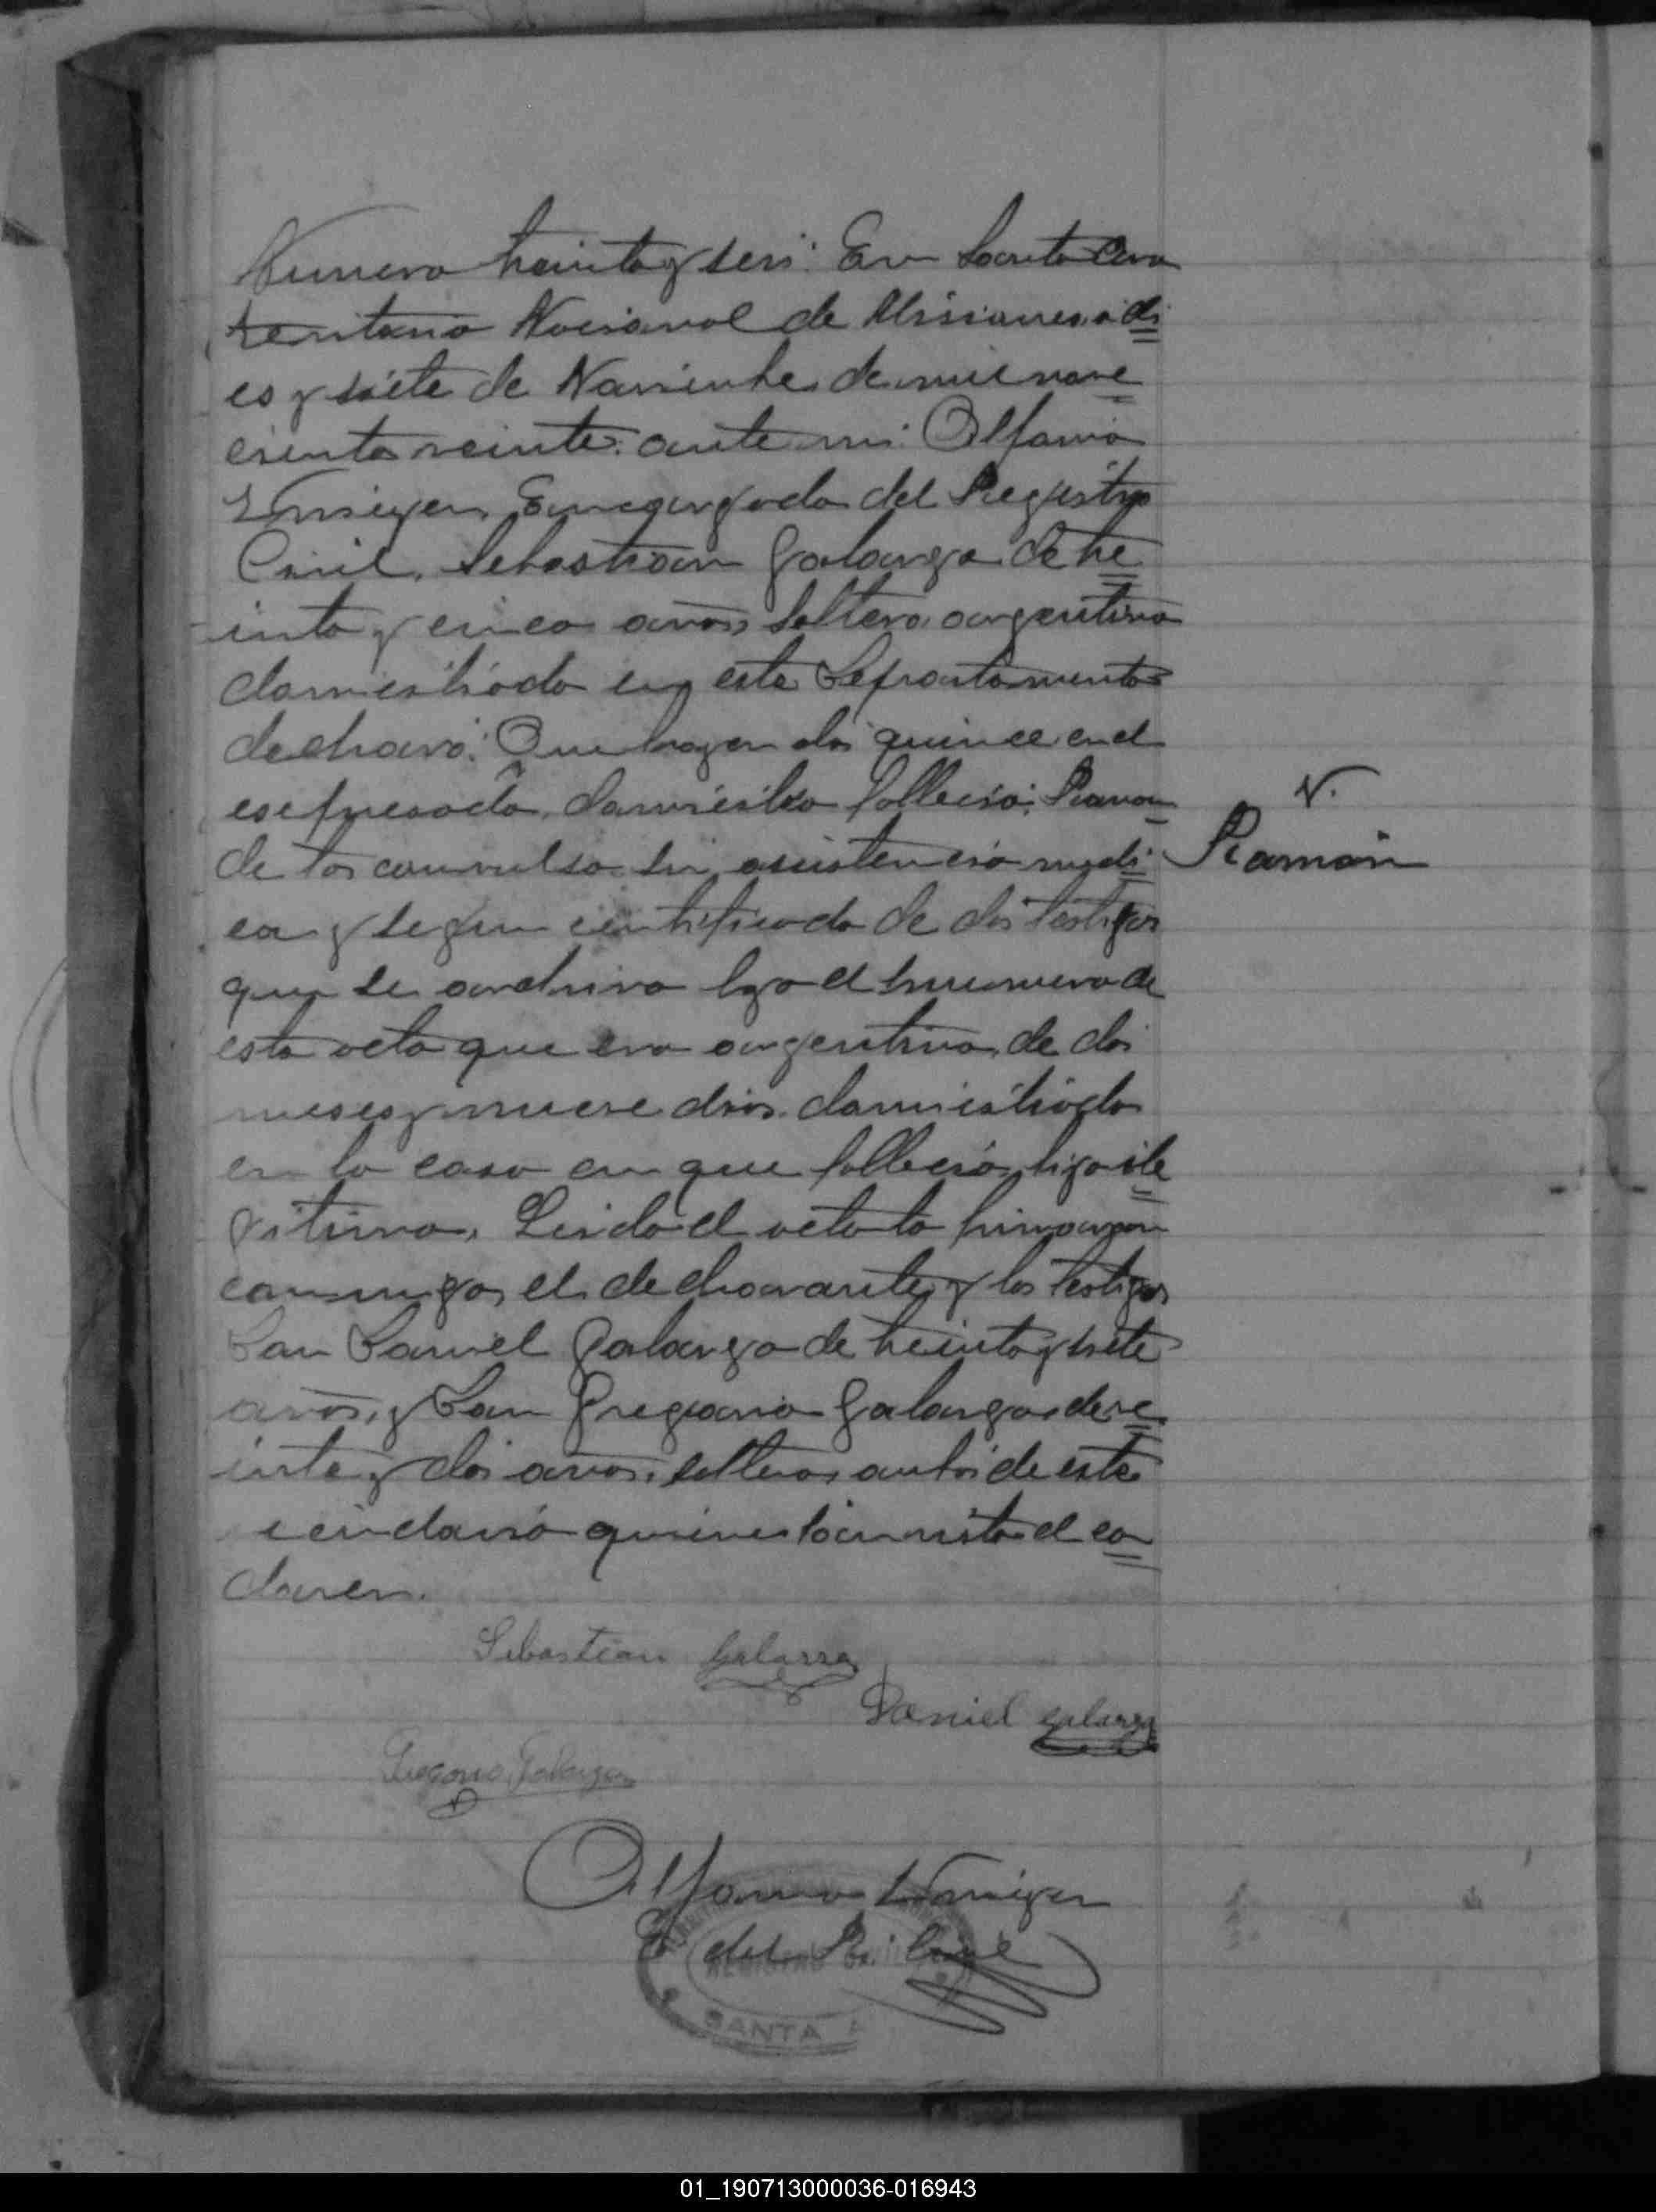 Numero treinta y seis: En Santa Ana
territorio Nacional de Misiones a di
es y siete de Noviembre de mil nove
cientos veinte: ante mi: Alfonso
Encargado del Registro
Civil, Sebastian Galarza de tre
inta y cinco años, soltero, argentino
domiciliado en este Departamento
declaró: Que hoy a las quince en el
expresado domicilio falleció: Ramon
de tos convulsa sin asistencia medi
ca y segun certificado de dos testigos
que se archiva bajo el numero de
esta acta que era argentino, de dos
meses y nueve dias, domiciliado
en la casa en que falleció, hijo ile
gitimo. Leida el acta la firmaron
conmigo, el declarante y los testigos
Don Daniel Galarza de treinta y siete
años, y Don Gregorio Galarza, de ve
inte y dos años, solteros ambos de este
vecindario quienes han visto el ca
daver.
N.
Ramón
Sebastian Galarza
Daniel Galarza
Gregorio Galarza
Alfonso
E. del R. Civil
SANTA